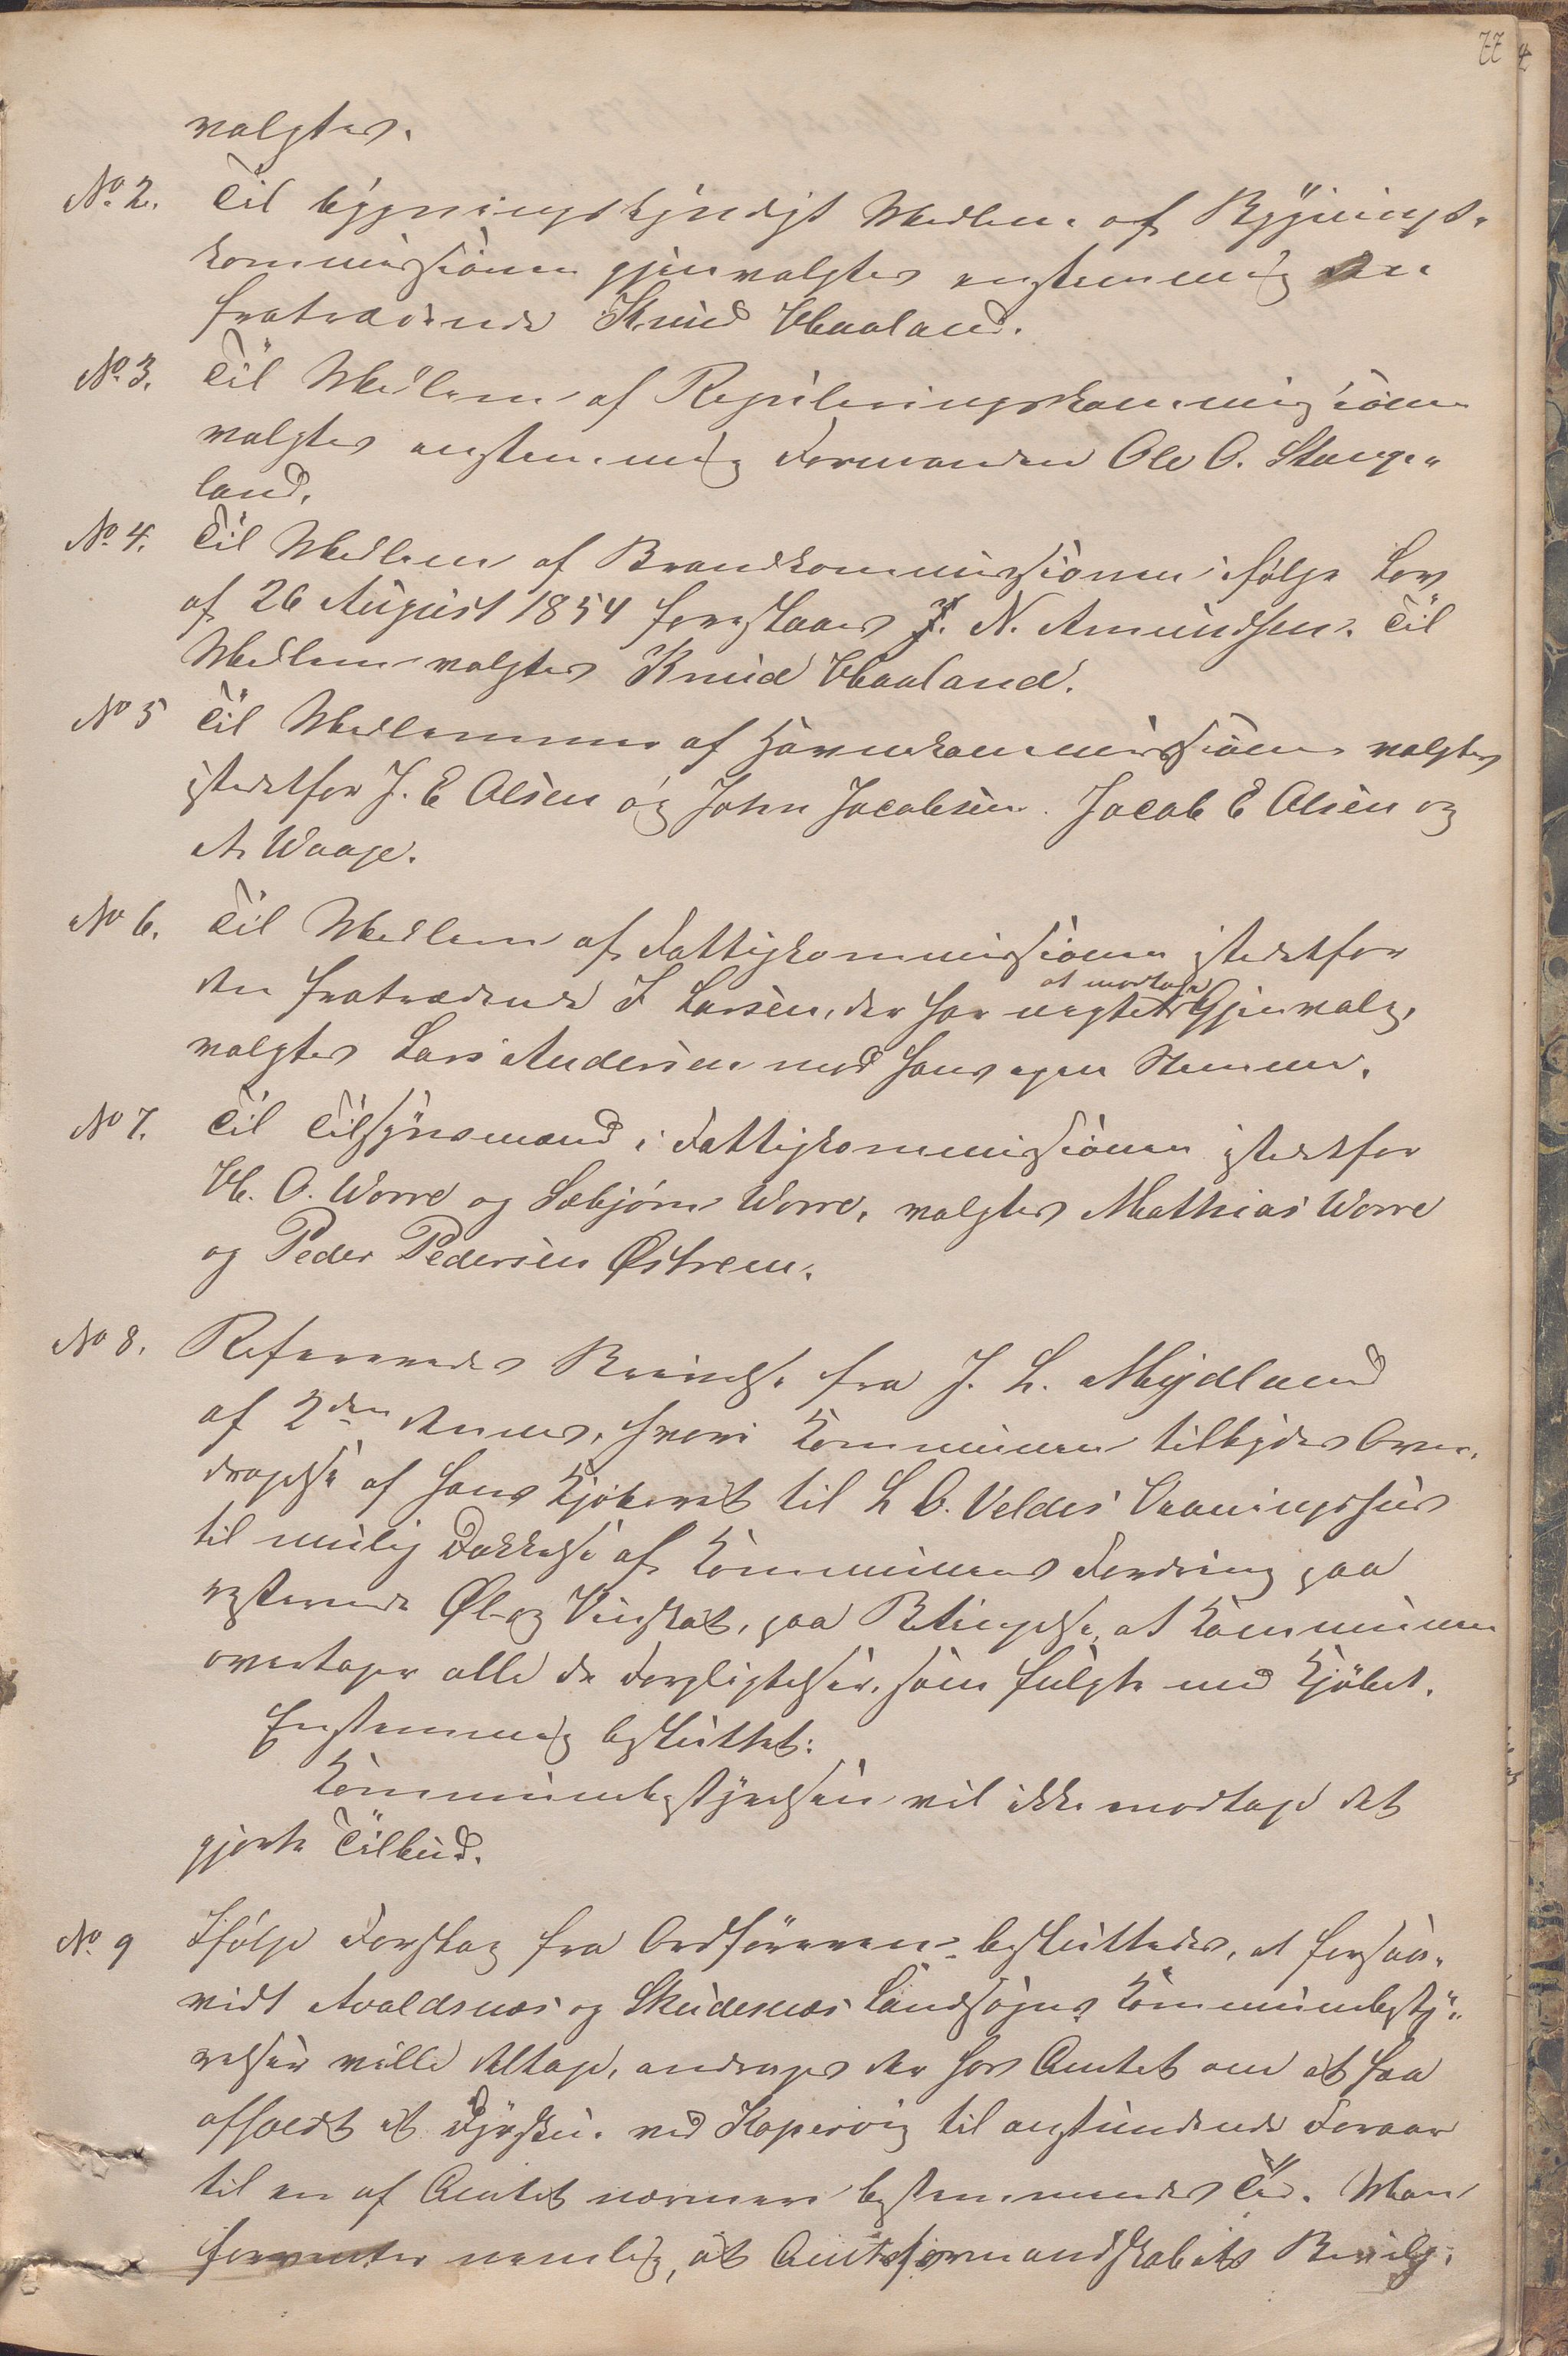 77
valgtes.
No. 2. Til bygningskyndigt Medlem af Bygnings-
kommissionen gjenvalgtes enstemmig den
fratrædende Knud Haaland.
No. 3. Til Medlem af Reguleringskommissionen
valgtes enstemmig Formanden Ole O. Stange-
land.
No. 4. Til Medlem af Brandkommissionen ifølge Lov
af 26 August 1854 foreslaaes J. N. Amundsen. Til
Medlem valgtes Knud Haaland.
No 5 Til Medlemmer af Havnekommissionen valgtes
istedetfor J. E Olsen og John Jacobsen. Jacob E Olsen og
A. Waage.
No 6. Til Medlem af Fattigkommissionen istedetfor
at modtage
den fratrædende J Larsen, der har negtet Gjenvalg,
valgtes Lars Andersen mod hans egen Stemme.
No 7. Til Tilsynsmænd i Fattigkommissionen istedetfor
H. O. Worre og Sæbjørn Worre, valgtes Mathias Worre
og Peder Pedersen Østrem.
No 8. Refereredes Skrivelse fra J. L. Mydland
af 2den dennes, hvori Kommunen tilbydes Over-
dragelse af hans Kjøberet til L O. Veldes Vaaningshus
til mulig Dækkelse af Kommunens Fordring paa
resterende Øl- og Vinskat, paa Betingelse, at Kommunen
overtager alle de Forpligtelser, som fulgte med Kjøbet.
Enstemmig besluttet:
Kommunebestyrelsen vil ikke modtage det
gjorte Tilbud.
No. 9 Ifølge Forslag fra Ordføreren besluttedes, at forsaa-
vidt Avaldsnæs og Skudesnæs Landsogns Kommunebesty-
relser ville deltage, andrages der hos Amtet om at faa
afholdt et Dyrskue ved Kopervig til anstundende Foraar
til en af Amtet nærmere bestemmendes Tid. Man
forventer nemlig, at Amtsformandskabets Bevilg-